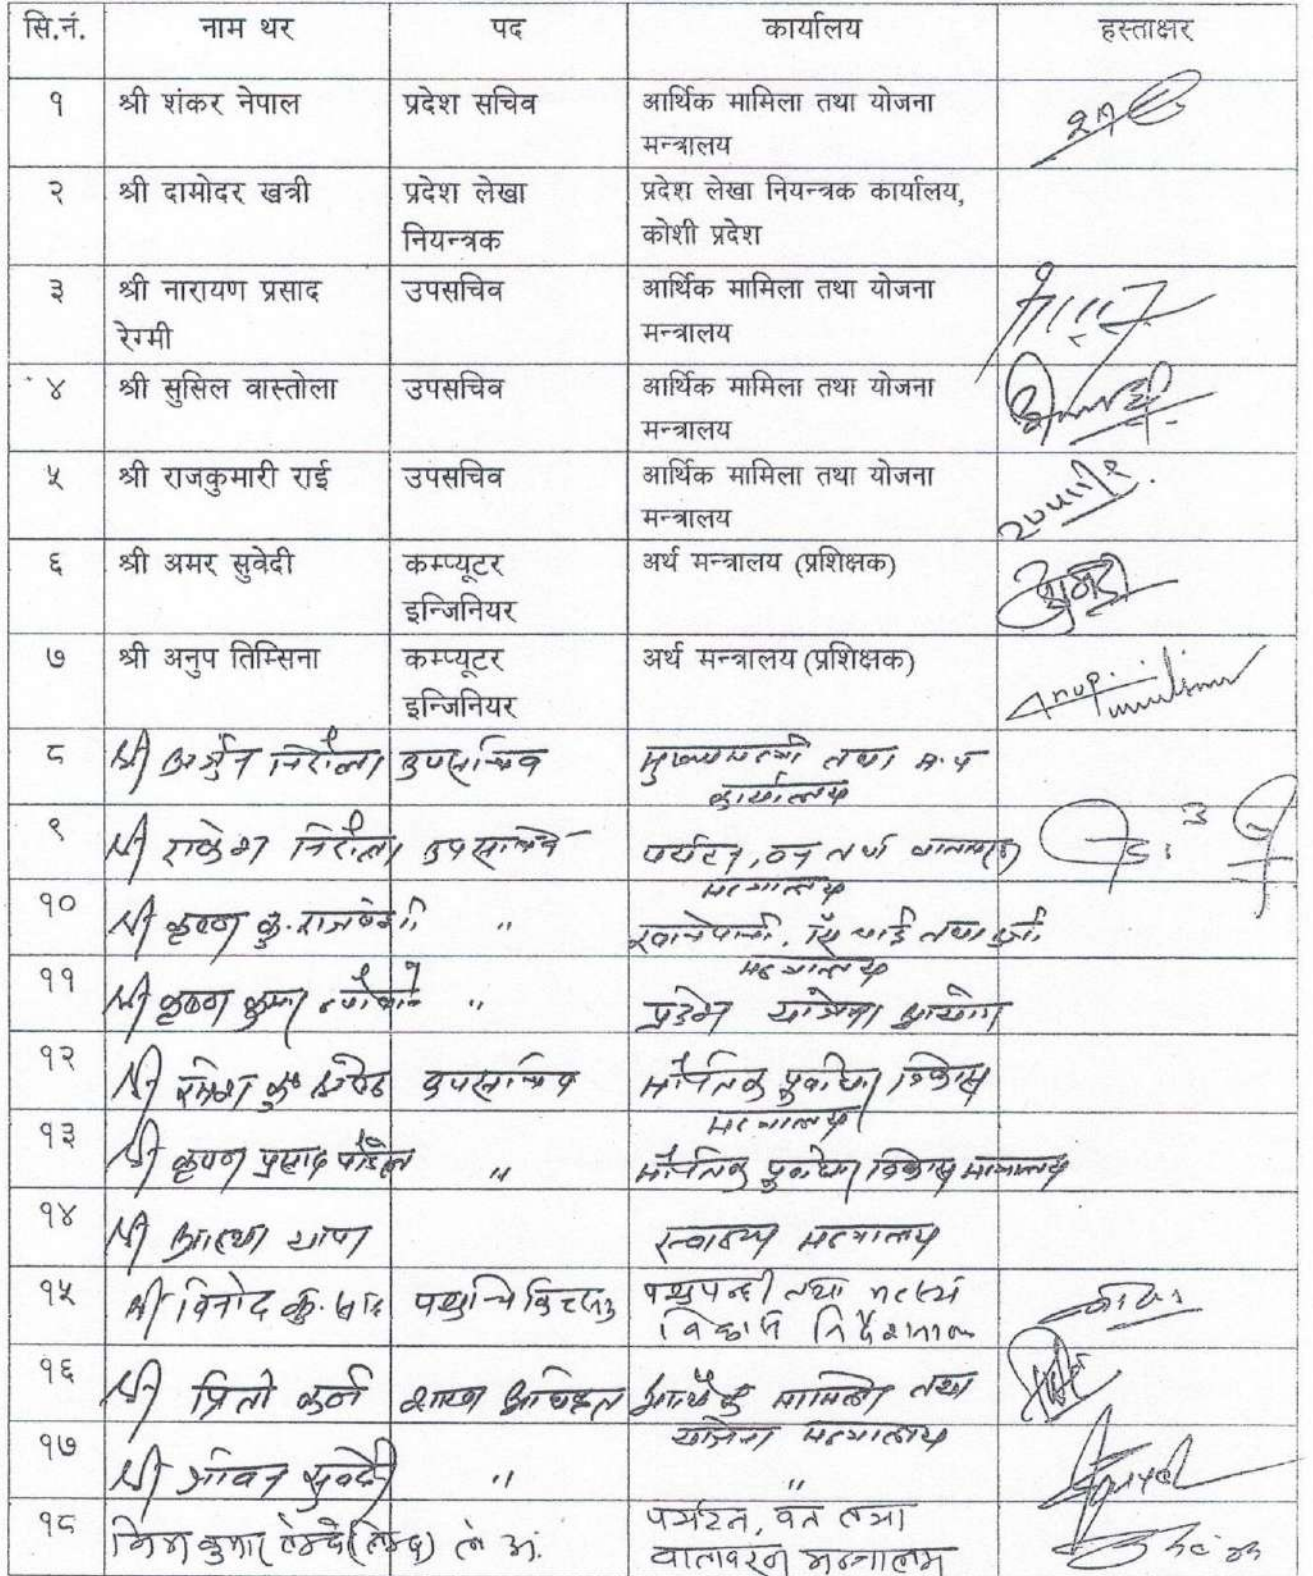 सि.नं. नाम थर पद कार्यालय हस्ताक्षर
१ श्री शंकर नेपाल प्रदेश सचिव आर्थिक मामिला तथा योजना
मन्त्रालय
२ श्री दामोदर खत्री प्रदेश लेखा प्रदेश लेखा नियन्त्रक कार्यालय,
नियन्त्रक कोशी प्रदेश
३ श्री नारायण प्रसाद उपसचिव आर्थिक मामिला तथा योजना
रेग्मी मन्त्रालय
४ श्री सुसिल वास्तोला उपसचिव आर्थिक मामिला तथा योजना
मन्त्रालय
५ श्री राजकुमारी राई उपसचिव आर्थिक मामिला तथा योजना
मन्त्रालय
६ श्री अमर सुवेदी कम्प्यूटर अर्थ मन्त्रालय (प्रशिक्षक)
इन्जिनियर
७ श्री अनुप तिम्सिना कम्प्यूटर अर्थ मन्त्रालय (प्रशिक्षक)
इन्जिनियर
८ श्री अर्जुन निरौला उपसचिव मुख्यमन्त्री तथा म.प
कार्यालय
९ श्री राकेश निरौला उपसचिव पर्यटन, वन तथा वातावरण
मन्त्रालय
१० श्री कृष्ण कु. राजवंशी " खानेपानी, सिंचाई तथा उर्जा
मन्त्रालय
११ श्री कृष्ण कुमार " प्रदेश योजना आयोग
१२ श्री रमेश कु उपसचिव भौतिक पूर्वाधार विकास
मन्त्रालय
१३ श्री कृष्ण प्रसाद पौडेल " भौतिक पूर्वाधार विकास मन्त्रालय
१४ श्री आस्था थापा स्वास्थ्य मन्त्रालय
१५ श्री विनोद कु. साह पशु चिकित्सक पशुपन्छी तथा मत्स्य
विकास निर्देशनालय
१६ श्री प्रिती कर्ण शाखा अधिकृत आर्थिक मामिला तथा
योजना मन्त्रालय
१७ श्री जीवन सुवेदी " "
१८ कुमार ले अ. पर्यटन, वन तथा
वातावरण मन्त्रालय